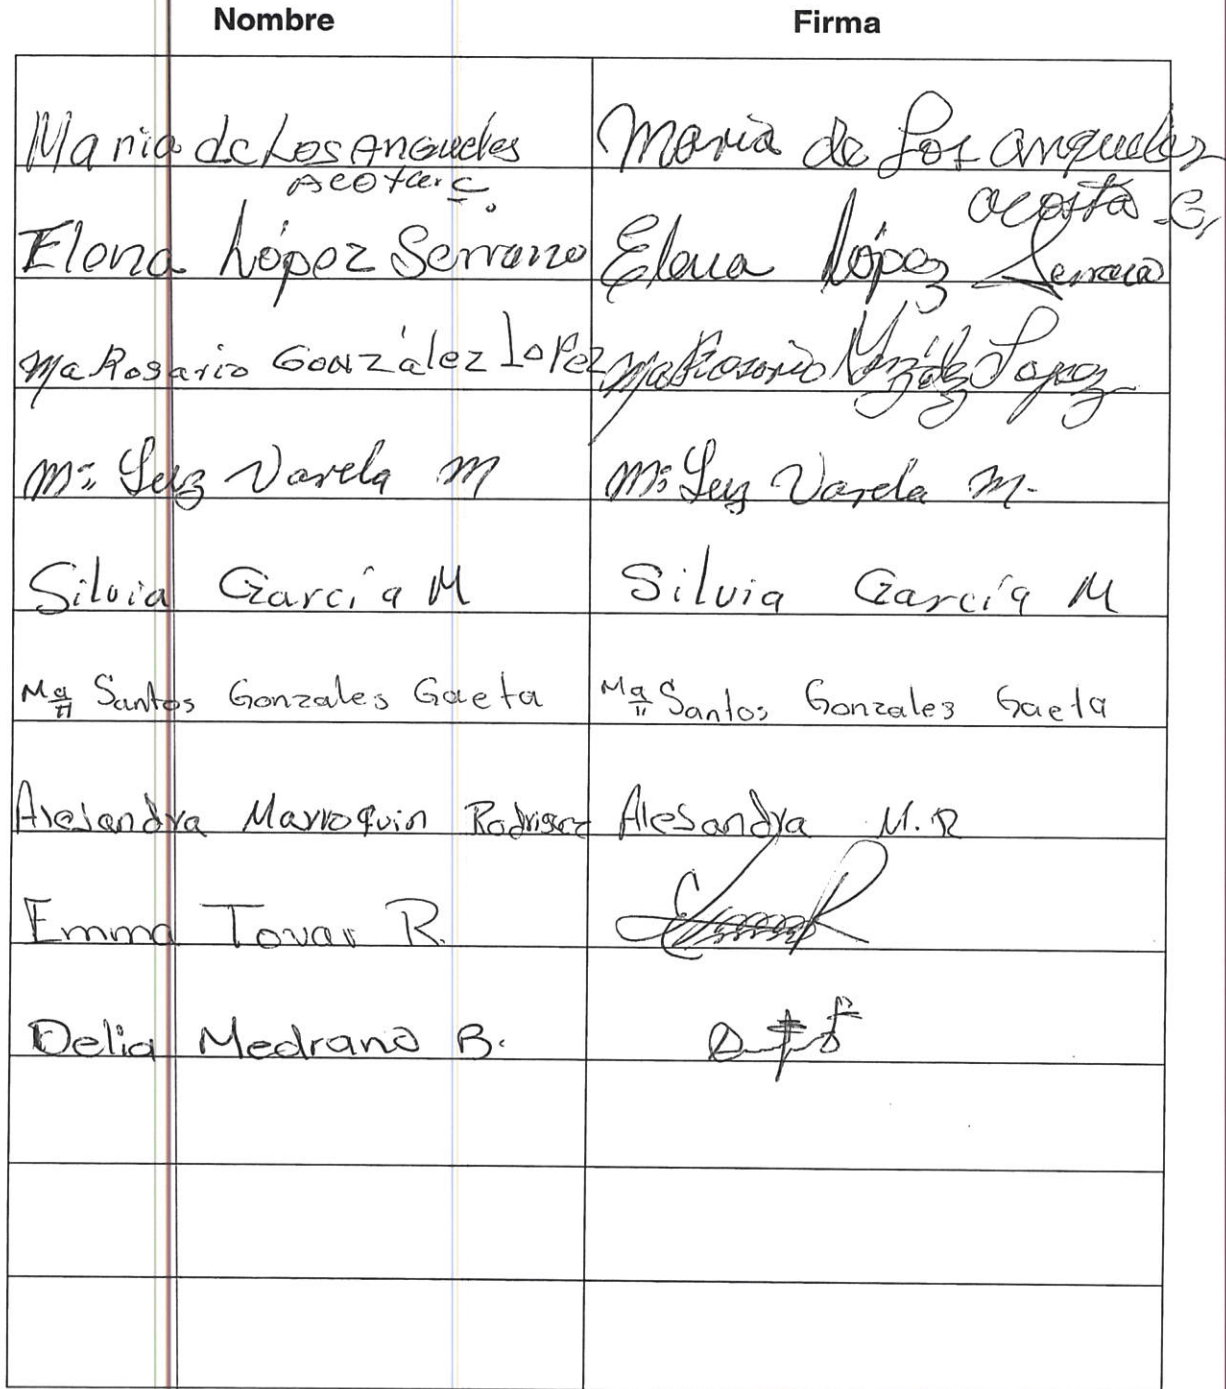 Nombre Firma
Maria de Los Angueles Maria de Los angueles
acosta C.
Elena López Serrano Elena López Serrano
Ma Rosario González Lopez Ma Rosario Lopez
Ma. Luz Varela M Ma. Luz Varela M.
Silvia García M Silvia García M
Ma Santos Gonzales Gaeta Ma Santos Gonzales Gaeta
Alejandra Marroquin Rodriguez Alesandra M.R
Emma Tovar R.
Delia Medrano B.